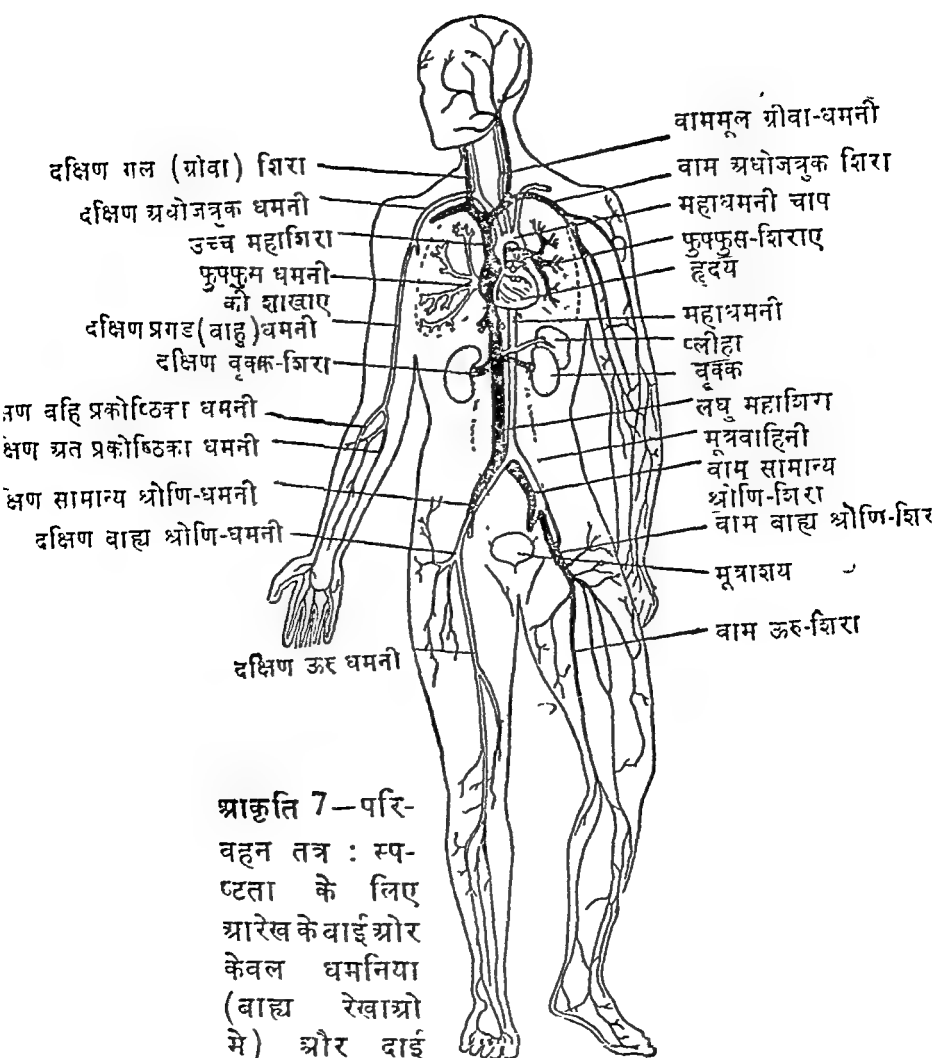 दक्षिण गल (ग्रीवा) शिरा
दक्षिण अधोजत्रुक धमनी
उच्च महाशिरा
फुफ्फुस धमनी
की शाखाए
दक्षिण प्रगड (बाहु) धमनी
दक्षिण वृक्क-शिरा
क्षिण वहि प्रकोष्ठिका धमनी
क्षिण अत प्रकोष्ठिका धमनी
क्षिण सामान्य श्रोणि-धमनी
दक्षिण वाह्य श्रोणि-धमनी
दक्षिण ऊरु धमनी
वाममूल ग्रीवा-धमनी
वाम अधोजत्रुक शिरा
महाधमनी चाप
फुफ्फुस-शिराए
हृदय
महाधमनी
प्लीहा
वृक्क
लघु महाशिरा
मूत्रवाहिनी
वाम सामान्य
श्रोणि-शिरा
वाम वाह्य श्रोणि-शिर
मूत्राशय
वाम ऊरु-शिरा
आकृति 7—परि-
वहन तत्र : स्प-
ष्टता के लिए
आरेख के वाई ओर
केवल धमनिया
(बाह्य रेखाओ
मे) और दाई